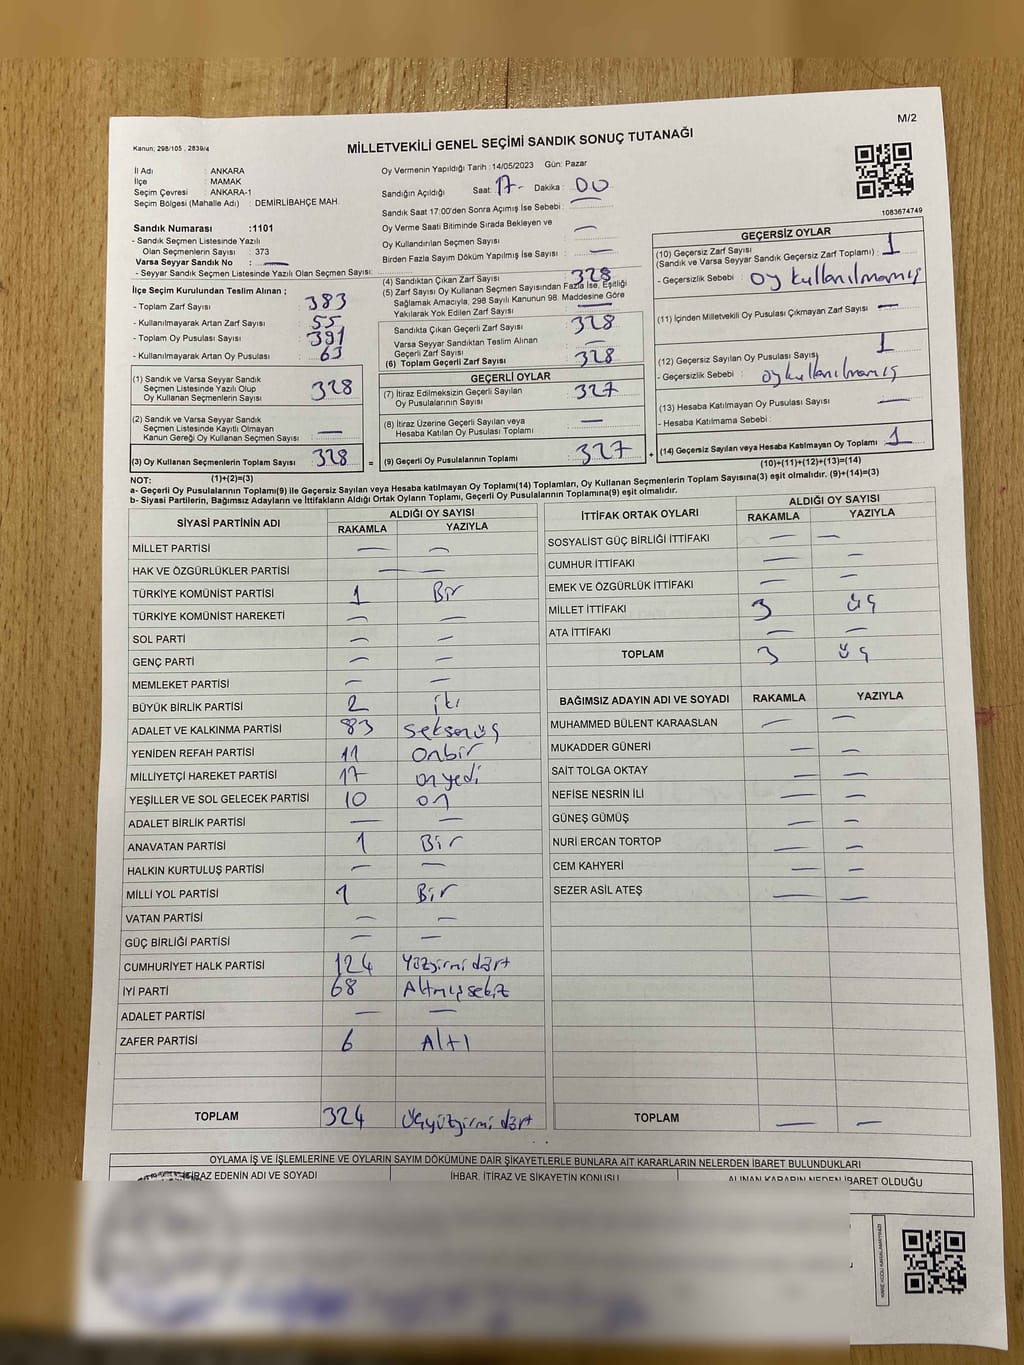 M/2
Kanun; 298/105 , 2839/4
MİLLETVEKİLİ GENEL SEÇİMİ SANDIK SONUÇ TUTANAĞI
İl Adı : ANKARA
İlçe : MAMAK
Seçim Çevresi : ANKARA-1
Seçim Bölgesi (Mahalle Adı) : DEMİRLİBAHÇE MAH.
Sandık Numarası :1101
- Sandık Seçmen Listesinde Yazılı
Olan Seçmenlerin Sayısı : 373
Varsa Seyyar Sandık No : —
- Seyyar Sandık Seçmen Listesinde Yazılı Olan Seçmen Sayısı:
Oy Vermenin Yapıldığı Tarih : 14/05/2023 Gün: Pazar
Sandığın Açıldığı Saat : 17- Dakika : 00
Sandık Saat 17:00'den Sonra Açımış İse Sebebi :
Oy Verme Saati Bitiminde Sırada Bekleyen ve
Oy Kullandırılan Seçmen Sayısı : —
Birden Fazla Sayım Döküm Yapılmış İse Sayısı : —
1083674749
İlçe Seçim Kurulundan Teslim Alınan ;
- Toplam Zarf Sayısı : 383
- Kullanılmayarak Artan Zarf Sayısı : 55
- Toplam Oy Pusulası Sayısı : 391
- Kullanılmayarak Artan Oy Pusulası : 63
(1) Sandık ve Varsa Seyyar Sandık
Seçmen Listesinde Yazılı Olup
Oy Kullanan Seçmenlerin Sayısı : 328
(2) Sandık ve Varsa Seyyar Sandık
Seçmen Listesinde Kayıtlı Olmayan
Kanun Gereği Oy Kullanan Seçmen Sayısı : —
(3) Oy Kullanan Seçmenlerin Toplam Sayısı : 328
(4) Sandıktan Çıkan Zarf Sayısı : 328
(5) Zarf Sayısı Oy Kullanan Seçmen Sayısından Fazla İse, Eşitliği
Sağlamak Amacıyla, 298 Sayılı Kanunun 98. Maddesine Göre
Yakılarak Yok Edilen Zarf Sayısı : —
Sandıkta Çıkan Geçerli Zarf Sayısı : 328
Varsa Seyyar Sandıktan Teslim Alınan
Geçerli Zarf Sayısı : —
(6) Toplam Geçerli Zarf Sayısı : 328
GEÇERLİ OYLAR
(7) İtiraz Edilmeksizin Geçerli Sayılan
Oy Pusulalarının Sayısı : 327
(8) İtiraz Üzerine Geçerli Sayılan veya
Hesaba Katılan Oy Pusulası Toplamı : —
= (9) Geçerli Oy Pusulalarının Toplamı : 327
GEÇERSİZ OYLAR
(10) Geçersiz Zarf Sayısı
(Sandık ve Varsa Seyyar Sandık Geçersiz Zarf Toplamı) : 1
- Geçersizlik Sebebi : oy kullanılmamış
(11) İçinden Milletvekili Oy Pusulası Çıkmayan Zarf Sayısı : —
(12) Geçersiz Sayılan Oy Pusulası Sayısı : 1
- Geçersizlik Sebebi : oy kullanılmamış
(13) Hesaba Katılmayan Oy Pusulası Sayısı : —
- Hesaba Katmama Sebebi :
+ (14) Geçersiz Sayılan veya Hesaba Katılmayan Oy Toplamı : 1
NOT: (1)+(2)=(3)
(10)+(11)+(12)+(13)=(14)
a- Geçerli Oy Pusulalarının Toplamı(9) ile Geçersiz Sayılan veya Hesaba katılmayan Oy Toplamı(14) Toplamları, Oy Kullanan Seçmenlerin Toplam Sayısına(3) eşit olmalıdır. (9)+(14)=(3)
b- Siyasi Partilerin, Bağımsız Adayların ve İttifakların Aldığı Ortak Oyların Toplamı, Geçerli Oy Pusulalarının Toplamına(9) eşit olmalıdır.
SİYASİ PARTİNİN ADI ALDIĞI OY SAYISI
RAKAMLA YAZIYLA
MİLLET PARTİSİ — —
HAK VE ÖZGÜRLÜKLER PARTİSİ — —
TÜRKİYE KOMÜNİST PARTİSİ 1 Bir
TÜRKİYE KOMÜNİST HAREKETİ — —
SOL PARTİ — —
GENÇ PARTİ — —
MEMLEKET PARTİSİ — —
BÜYÜK BİRLİK PARTİSİ 2 iki
ADALET VE KALKINMA PARTİSİ 83 seksenüç
YENİDEN REFAH PARTİSİ 11 onbir
MİLLİYETÇİ HAREKET PARTİSİ 17 onyedi
YEŞİLLER VE SOL GELECEK PARTİSİ 10 on
ADALET BİRLİK PARTİSİ — —
ANAVATAN PARTİSİ 1 Bir
HALKIN KURTULUŞ PARTİSİ — —
MİLLİ YOL PARTİSİ 1 Bir
VATAN PARTİSİ — —
GÜÇ BİRLİĞİ PARTİSİ — —
CUMHURİYET HALK PARTİSİ 124 Yüzyirmi dört
İYİ PARTİ 68 Altmışsekiz
ADALET PARTİSİ — —
ZAFER PARTİSİ 6 Altı
TOPLAM 324 üçyüzyirmi dört
İTTİFAK ORTAK OYLARI ALDIĞI OY SAYISI
RAKAMLA YAZIYLA
SOSYALİST GÜÇ BİRLİĞİ İTTİFAKI — —
CUMHUR İTTİFAKI — —
EMEK VE ÖZGÜRLÜK İTTİFAKI — —
MİLLET İTTİFAKI 3 üç
ATA İTTİFAKI — —
TOPLAM 3 üç
BAĞIMSIZ ADAYIN ADI VE SOYADI RAKAMLA YAZIYLA
MUHAMMED BÜLENT KARAASLAN — —
MUKADDER GÜNERİ — —
SAİT TOLGA OKTAY — —
NEFİSE NESRİN İLİ — —
GÜNEŞ GÜMÜŞ — —
NURİ ERCAN TORTOP — —
CEM KAHYERİ — —
SEZER ASİL ATEŞ — —
TOPLAM — —
OYLAMA İŞ VE İŞLEMLERİNE VE OYLARIN SAYIM DÖKÜMÜNE DAİR ŞİKAYETLERLE BUNLARA AİT KARARLARIN NELERDEN İBARET BULUNDUKLARI
İTİRAZ EDENİN ADI VE SOYADI İHBAR, İTİRAZ VE ŞİKAYETİN KONUSU ALINAN KARARIN NEDEN İBARET OLDUĞU